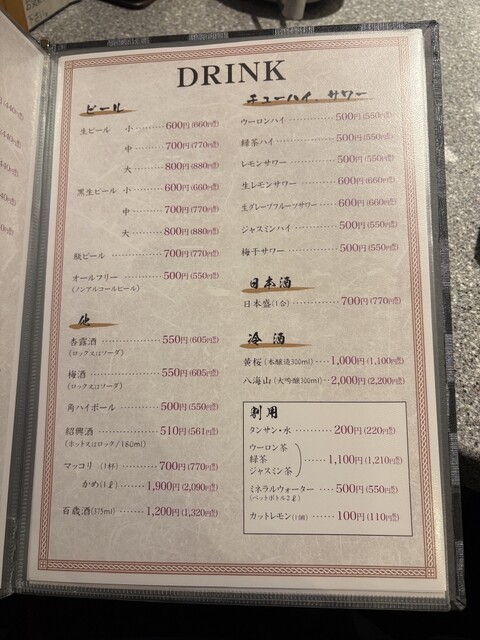 DRINK
ビール
生ビール 小 600円(660円)
中 700円(770円)
大 800円(880円)
黒生ビール 小 600円(660円)
中 700円(770円)
大 800円(880円)
瓶ビール 700円(770円)
オールフリー 500円(550円)
(ノンアルコールビール)
他
(ロック又はソーダ) 550円(605円)
梅酒 550円(605円)
(ロック又はソーダ)
角ハイボール 500円(550円)
紹興酒 510円(561円)
(ホット又はロック/180ml)
マッコリ (1杯) 700円(770円)
かめ(1ℓ) 1,900円(2,090円)
百歳酒(375ml) 1,200円(1,320円)
チューハイ、サワー
ウーロンハイ 500円(550円)
緑茶ハイ 500円(550円)
レモンサワー 500円(550円)
生レモンサワー 600円(660円)
生グレープフルーツサワー 600円(660円)
ジャスミンハイ 500円(550円)
梅干サワー 500円(550円)
日本酒
日本盛(1合) 700円(770円)
冷酒
黄桜(本醸造300ml) 1,000円(1,100円)
八海山(大吟醸300ml) 2,000円(2,200円)
割用
タンサン・水 200円(220円)
ウーロン茶
緑茶 1,100円(1,210円)
ジャスミン茶
ミネラルウォーター 500円(550円)
(ペットボトル2ℓ)
カットレモン(1個) 100円(110円)